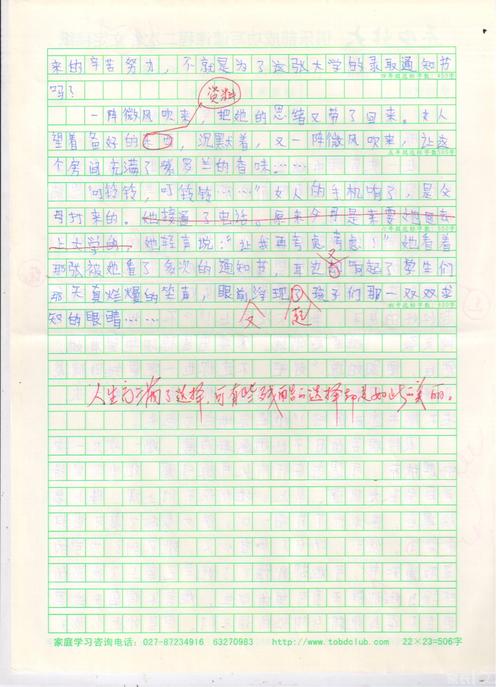 来的辛苦努力，不就是为了这张大学的录取通知书
吗？
资料
一阵微风吹来，把她的思绪又带了回来。女人
望着备好的，沉默着，又一阵微风吹来，让这
个房间充满了紫罗兰的香味……
“叮铃铃，叮铃铃……”女人的手机响了，是父
母打来的。她接通了电话，原来今日是来要她回去
上大学的，她轻声说：“让我再考虑考虑！”她看着
那张被她看了多次的通知书，耳边又响起了学生们
那天真烂熳的笑声，眼前浮现了孩子们那一双双求
知的眼睛……
又 起
人生充满了选择，可有些残酷的选择却是如此美丽。
家庭学习咨询电话：027-87234916 63270983 http://www.tobdclub.com 22×23=506字